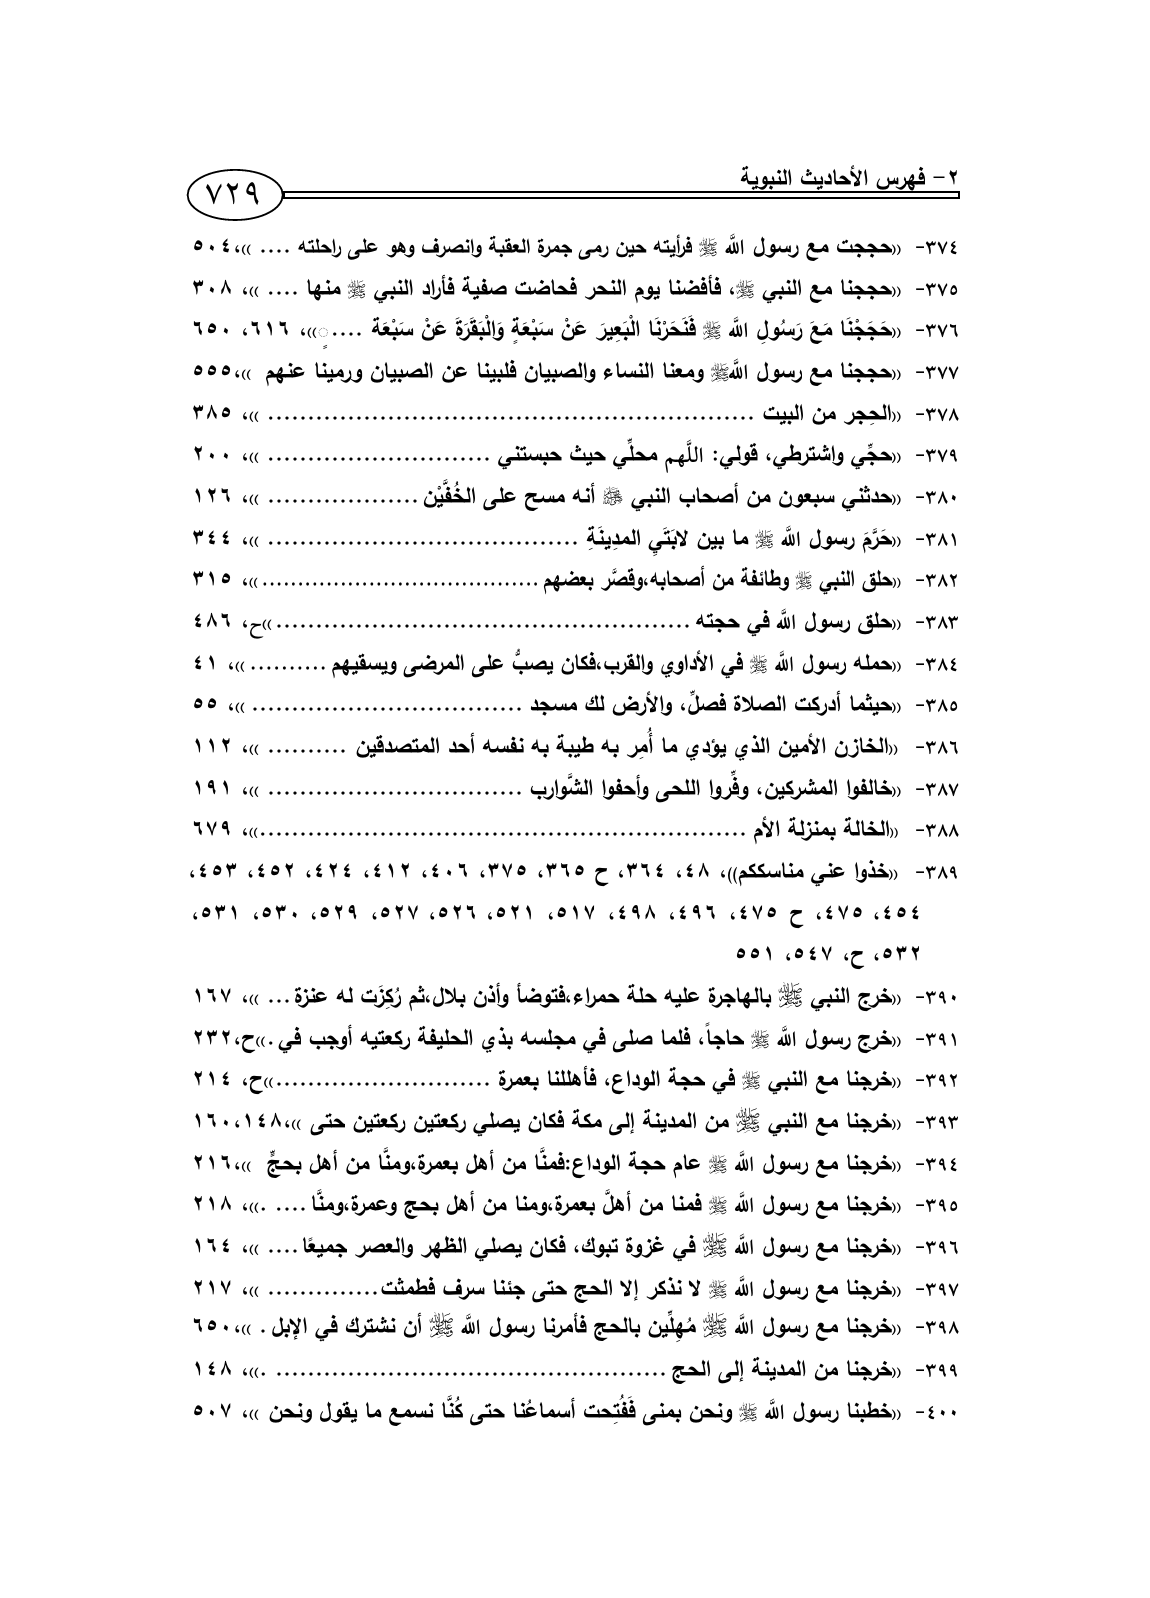 ٢- فهرس الأحاديث النبوية
٧٢٩
٣٧٤- ((حججت مع رسول الله ﷺ فرأيته حين رمى جمرة العقبة وانصرف وهو على راحلته .... ))، ٥٠٤
٣٧٥- ((حججنا مع النبي ﷺ، فأفضنا يوم النحر فحاضت صفية فأراد النبي ﷺ منها .... ))، ٣٠٨
٣٧٦- ((حَجَجْنَا مَعَ رَسُولِ الله ﷺ فَنَحَرْنَا الْبَعِيرَ عَنْ سَبْعَةٍ وَالْبَقَرَةَ عَنْ سَبْعَة ....ٍ))، ٦١٦، ٦٥٠
٣٧٧- ((حججنا مع رسول اللهﷺ ومعنا النساء والصبيان فلبينا عن الصبيان ورمينا عنهم ))،٥٥٥
٣٧٨- ((الحِجر من البيت ............................................................. ))، ٣٨٥
٣٧٩- ((حجِّي واشترطي، قولي: اللَّهم محلِّي حيث حبستني ............................ ))، ٢٠٠
٣٨٠- ((حدثني سبعون من أصحاب النبي ﷺ أنه مسح على الخُفَّيْن ................... ))، ١٢٦
٣٨١- ((حَرَّمَ رسول الله ﷺ ما بين لابَتَيِ المدِينَةِ ....................................... ))، ٣٤٤
٣٨٢- ((حلق النبي ﷺ وطائفة من أصحابه،وقصَّر بعضهم .......................................))، ٣١٥
٣٨٣- ((حلق رسول الله في حجته ....................................................))ح، ٤٨٦
٣٨٤- ((حمله رسول الله ﷺ في الأداوي والقرب،فكان يصبُّ على المرضى ويسقيهم .......... ))، ٤١
٣٨٥- ((حيثما أدركت الصلاة فصلِّ، والأرض لك مسجد .................................. ))، ٥٥
٣٨٦- ((الخازن الأمين الذي يؤدي ما أُمِر به طيبة به نفسه أحد المتصدقين .......... ))، ١١٢
٣٨٧- ((خالفوا المشركين، وفِّروا اللحى وأحفوا الشَّوارب ................................ ))، ١٩١
٣٨٨- ((الخالة بمنزلة الأم .............................................................))، ٦٧٩
٣٨٩- ((خذوا عني مناسككم))، ٤٨، ٣٦٤، ح ٣٦٥، ٣٧٥، ٤٠٦، ٤١٢، ٤٢٤، ٤٥٢، ٤٥٣،
٤٥٤، ٤٧٥، ح ٤٧٥، ٤٩٦، ٤٩٨، ٥١٧، ٥٢١، ٥٢٦، ٥٢٧، ٥٢٩، ٥٣٠، ٥٣١،
٥٣٢، ح، ٥٤٧، ٥٥١
٣٩٠- ((خرج النبي ﷺ بالهاجرة عليه حلة حمراء،فتوضأ وأذن بلال،ثم رُكِزَت له عنزة ... ))، ١٦٧
٣٩١- ((خرج رسول الله ﷺ حاجاً، فلما صلى في مجلسه بذي الحليفة ركعتيه أوجب في .))ح،٢٣٢
٣٩٢- ((خرجنا مع النبي ﷺ في حجة الوداع، فأهللنا بعمرة ...........................))ح، ٢١٤
٣٩٣- ((خرجنا مع النبي ﷺ من المدينة إلى مكة فكان يصلي ركعتين ركعتين حتى ))،١٤٨،١٦٠
٣٩٤- ((خرجنا مع رسول الله ﷺ عام حجة الوداع:فمنَّا من أهل بعمرة،ومنَّا من أهل بحجٍّ ))،٢١٦
٣٩٥- ((خرجنا مع رسول الله ﷺ فمنا من أهلَّ بعمرة،ومنا من أهل بحج وعمرة،ومنَّا .... .))، ٢١٨
٣٩٦- ((خرجنا مع رسول الله ﷺ في غزوة تبوك، فكان يصلي الظهر والعصر جميعًا .... ))، ١٦٤
٣٩٧- ((خرجنا مع رسول الله ﷺ لا نذكر إلا الحج حتى جئنا سرف فطمثت .............. ))، ٢١٧
٣٩٨- ((خرجنا مع رسول الله ﷺ مُهِلِّين بالحج فأمرنا رسول الله ﷺ أن نشترك في الإبل . ))،٦٥٠
٣٩٩- ((خرجنا من المدينة إلى الحج ................................................. .))، ١٤٨
٤٠٠- ((خطبنا رسول الله ﷺ ونحن بمنى فَفُتِحت أسماعُنا حتى كُنَّا نسمع ما يقول ونحن ))، ٥٠٧